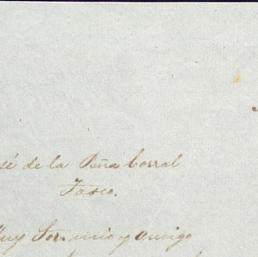 sé de la Peña Corral
Tasco.
uy Sor. mio y amigo